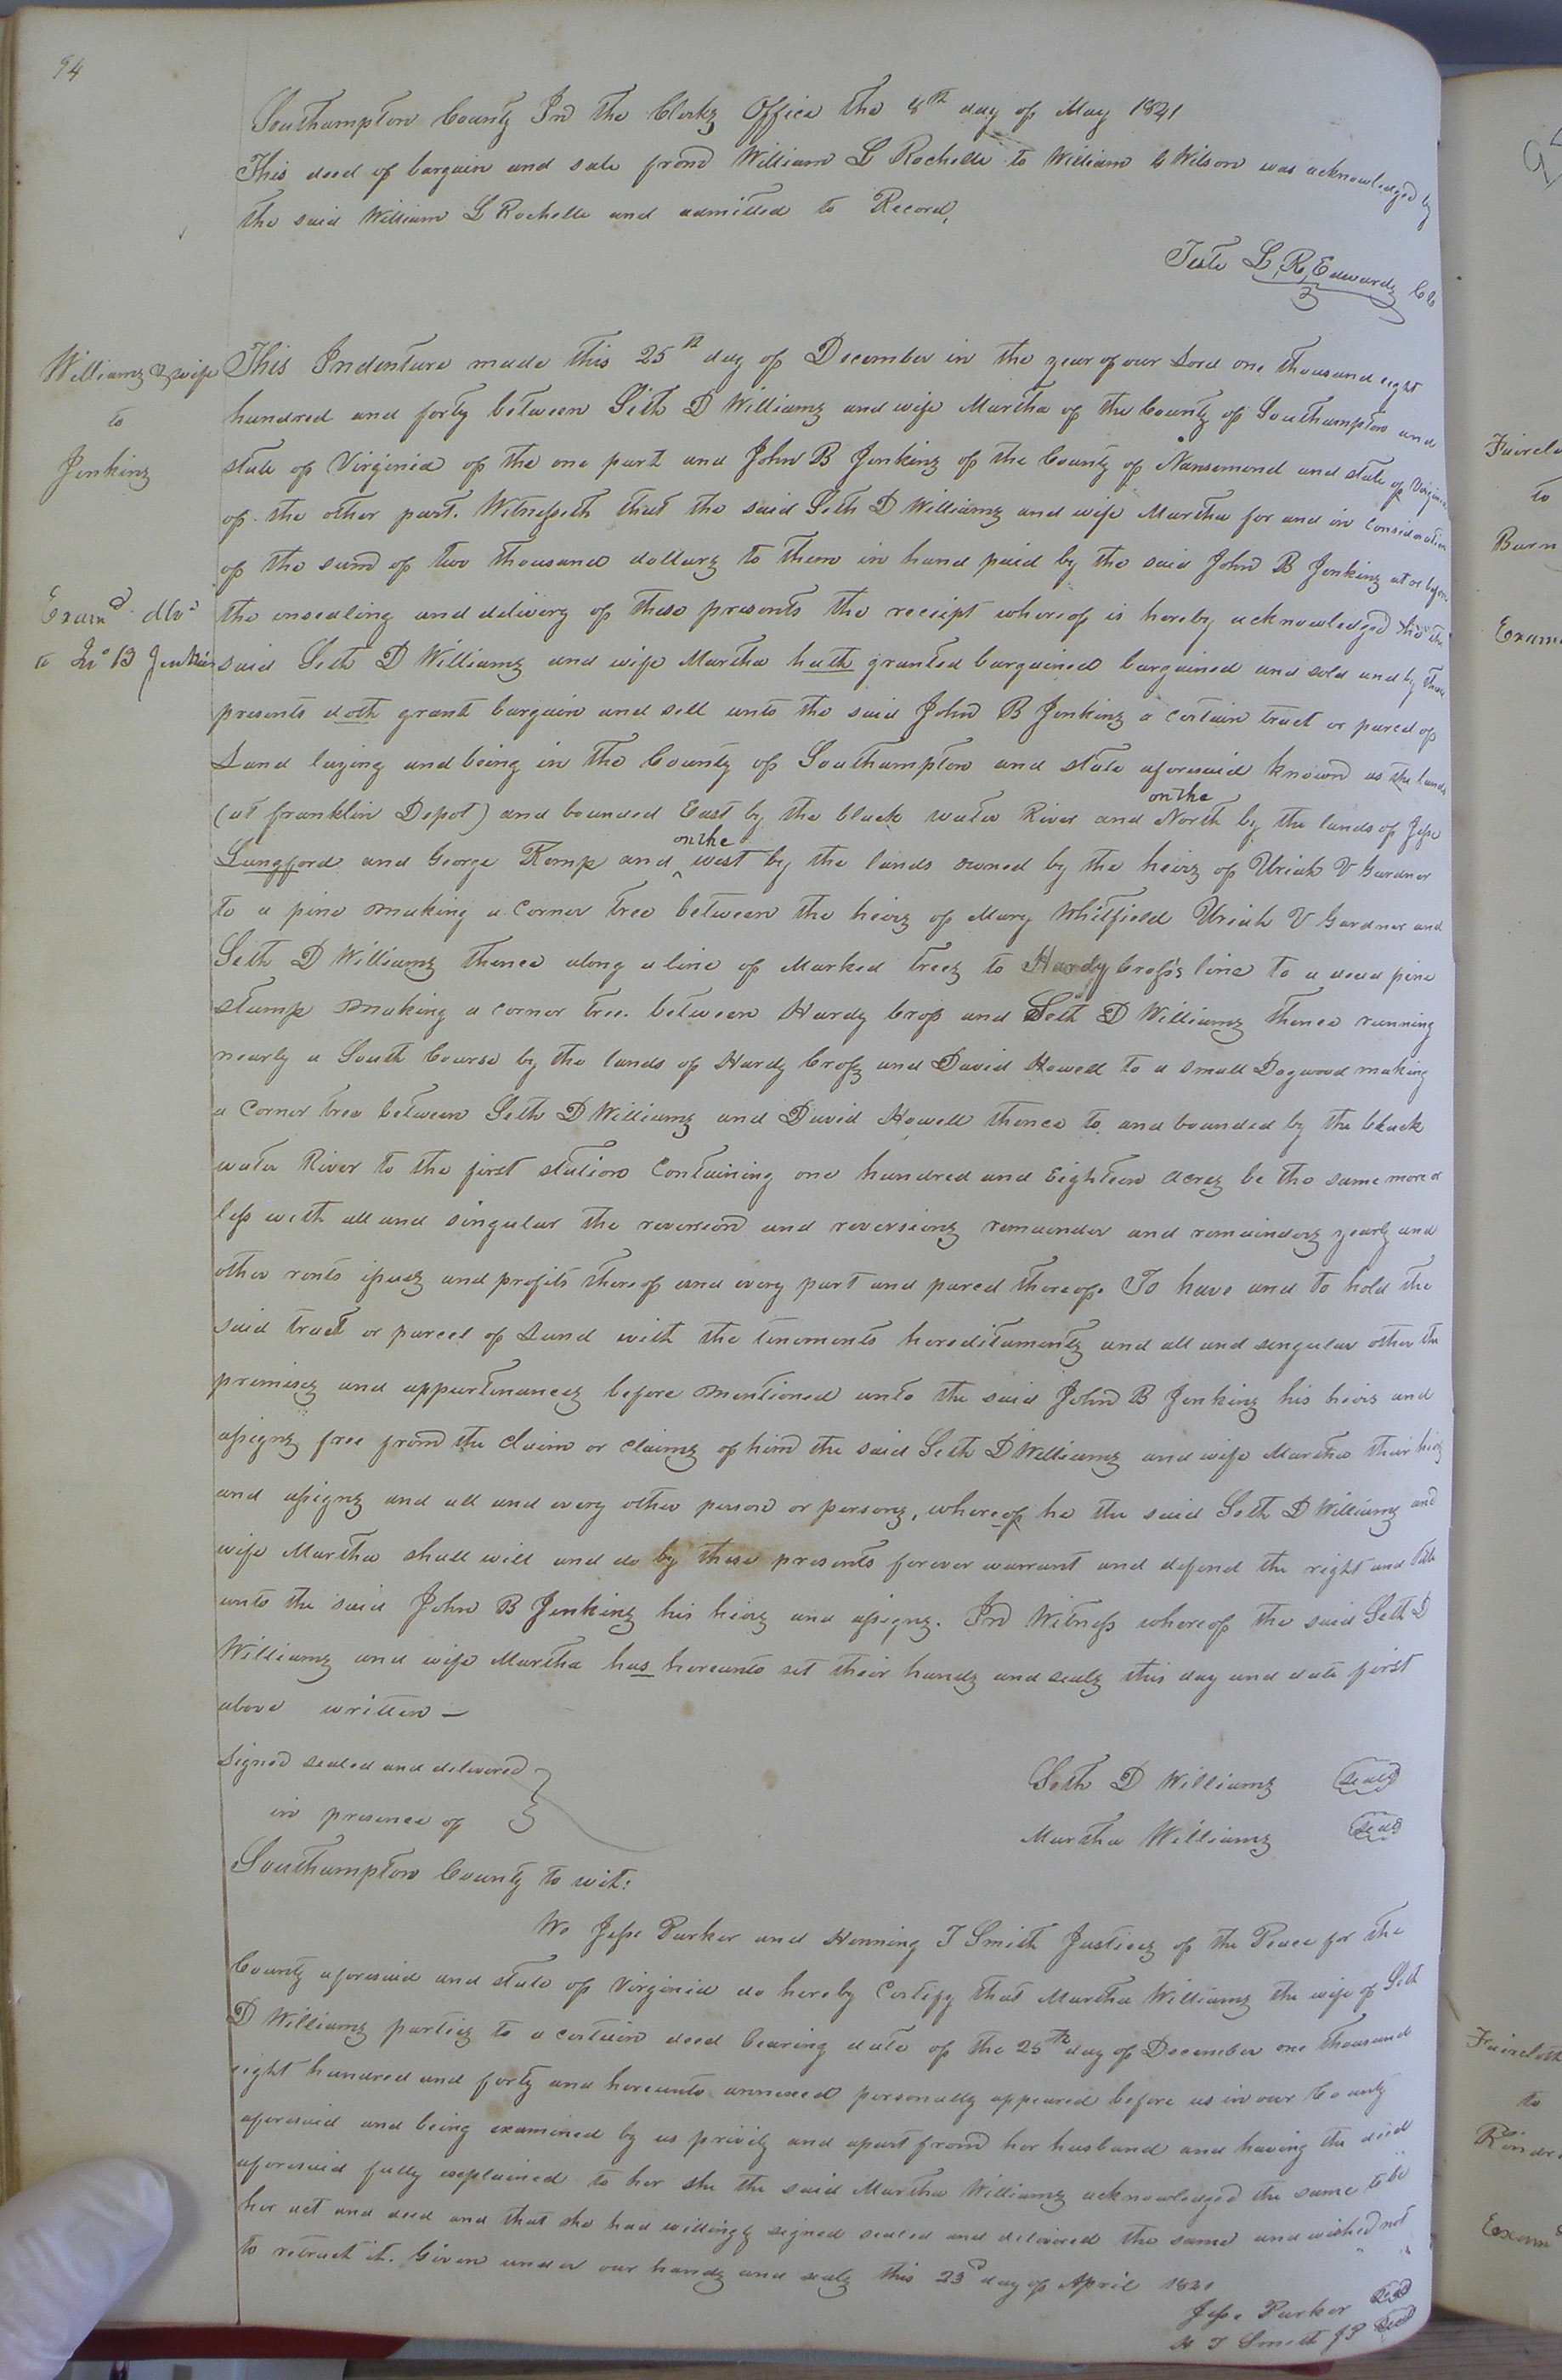 94
Southampton County In the Clerks Office the 8th day of May 1841
This deed of bargain and sale from William L Rochelle to William Wilson was acknowledged by
the said William L Rochelle and admitted to Record,
Teste L, R, Edwards Cl
Williams & wife
to
Jenkins
Examd dlvd
to Jno B Jenkins
This Indenture made this 25th day of December in the year of our Lord one thousand eight
hundred and forty between Seth D Williams and wife Martha of the County of Southampton and
state of Virginia of the one part and John B Jenkins of the County of Nansemond and state of Virginia
of the other part. Witnesseth that the said Seth D Williams and wife Martha for and in consideration
of the sum of two thousand dollars to them in hand paid by the said John B Jenkins at or before
the ensealing and delivery of these presents the receipt whereof is hereby acknowledged the
said Seth D Williams and wife Martha hath granted bargained bargained and sold and by these
presents doth grant bargain and sell unto the said John B Jenkins a certain tract or parcel of
Land laying and being in the County of Southampton and state aforesaid known as the lands
(at franklin Depot) and bounded East by the black water River and on the North by the lands of Jesse
Langford and George Kemp and on the west by the lands owned by the heirs of Uriah V Gardner
to a pine making a corner tree between the heirs of Mary Whitfield Uriah V Gardner and
Seth D Williams thence along a line of Marked trees to Hardy Cross's line to a dead pine
stump making a corner tree between Hardy Cross and Seth D Williams thence running
nearly a South Course by the lands of Hardy Cross and David Howell to a small Dogwood making
a corner tree between Seth D Williams and David Howell thence to and bounded by the black
water River to the first station Containing one hundred and Eighteen acres be the same more or
less with all and singular the reversion and reversions remainder and remainders yearly and
other rents issues and profits thereof and every part and parcel thereof. To have and to hold the
said tract or parcel of Land with the tenements hereditaments and all and singular other the
premises and appurtenances before mentioned unto the said John B Jenkins his heirs and
assigns free from the claim or claims of him the said Seth D Williams and wife Martha their heirs
and assigns and all and every other person or persons, whereof he the said Seth D Williams and
wife Martha shall will and do by these presents forever warrant and defend the right and title
unto the said John B Jenkins his heirs and assigns. In Witness whereof the said Seth D
Williams and wife Martha has hereunto set their hands and seals this day and date first
above written —
Signed sealed and delivered
in presence of
Seth D Williams seal
Martha Williams seal
Southampton County to wit:
We Jesse Parker and Henning T Smith Justices of the Peace for the
County aforesaid and state of Virginia do hereby Certify that Martha Williams the wife of Seth
D Williams parties to a certain deed bearing date of the 25th day of December one thousand
eight hundred and forty and hereunto annexed personally appeared before us in our County
aforesaid and being examined by us privily and apart from her husband and having the deed
aforesaid fully explained to her she the said Martha Williams acknowledged the same to be
her act and deed and that she had willingly signed sealed and delivered the same and wished not
to retract it. Given under our hands and seals this 23d day of April 1841
Jesse Parker seal
H T Smith JP seal
to
Exam
to